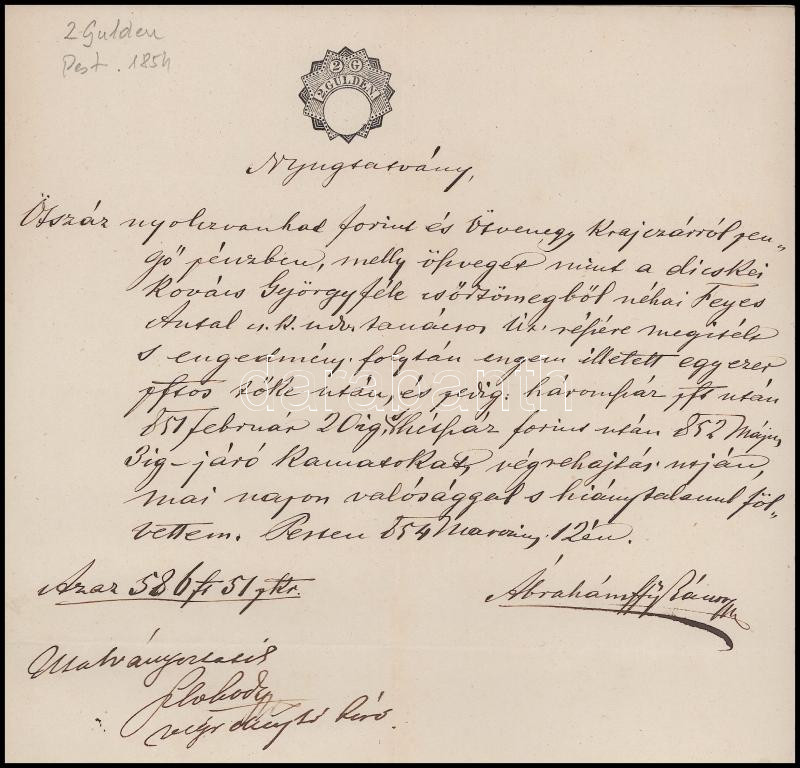 2 Gulden
Pest. 1854
2 G
2 GULDEN.
Nyugtatvány,
Ötszáz nyolczvanhat forint és ötvenegy krajczárról pen„
gő pénzben, melly öszveget mint a dicskei
Kovács Györgyféle csődtömegből néhai Feyes
Antal cs. k. udv. tanácsos úr részére megítélt
s engedmény folytán engem illetett egyezer
pftos tőke után, és pedig: háromszáz pft után
851 február 20ig, s hétszáz forint után 852 Május
3ig – járó kamatokat, végrehajtás utján,
mai napon valósággal s hiánytalanul föl„
vettem. Pesten 854 Marczius 12én.
Azaz 586 ft 51 pkr.
Ábrahámffy
Utalványoztatik
Slobody
végrehajtó biró.
darabanth